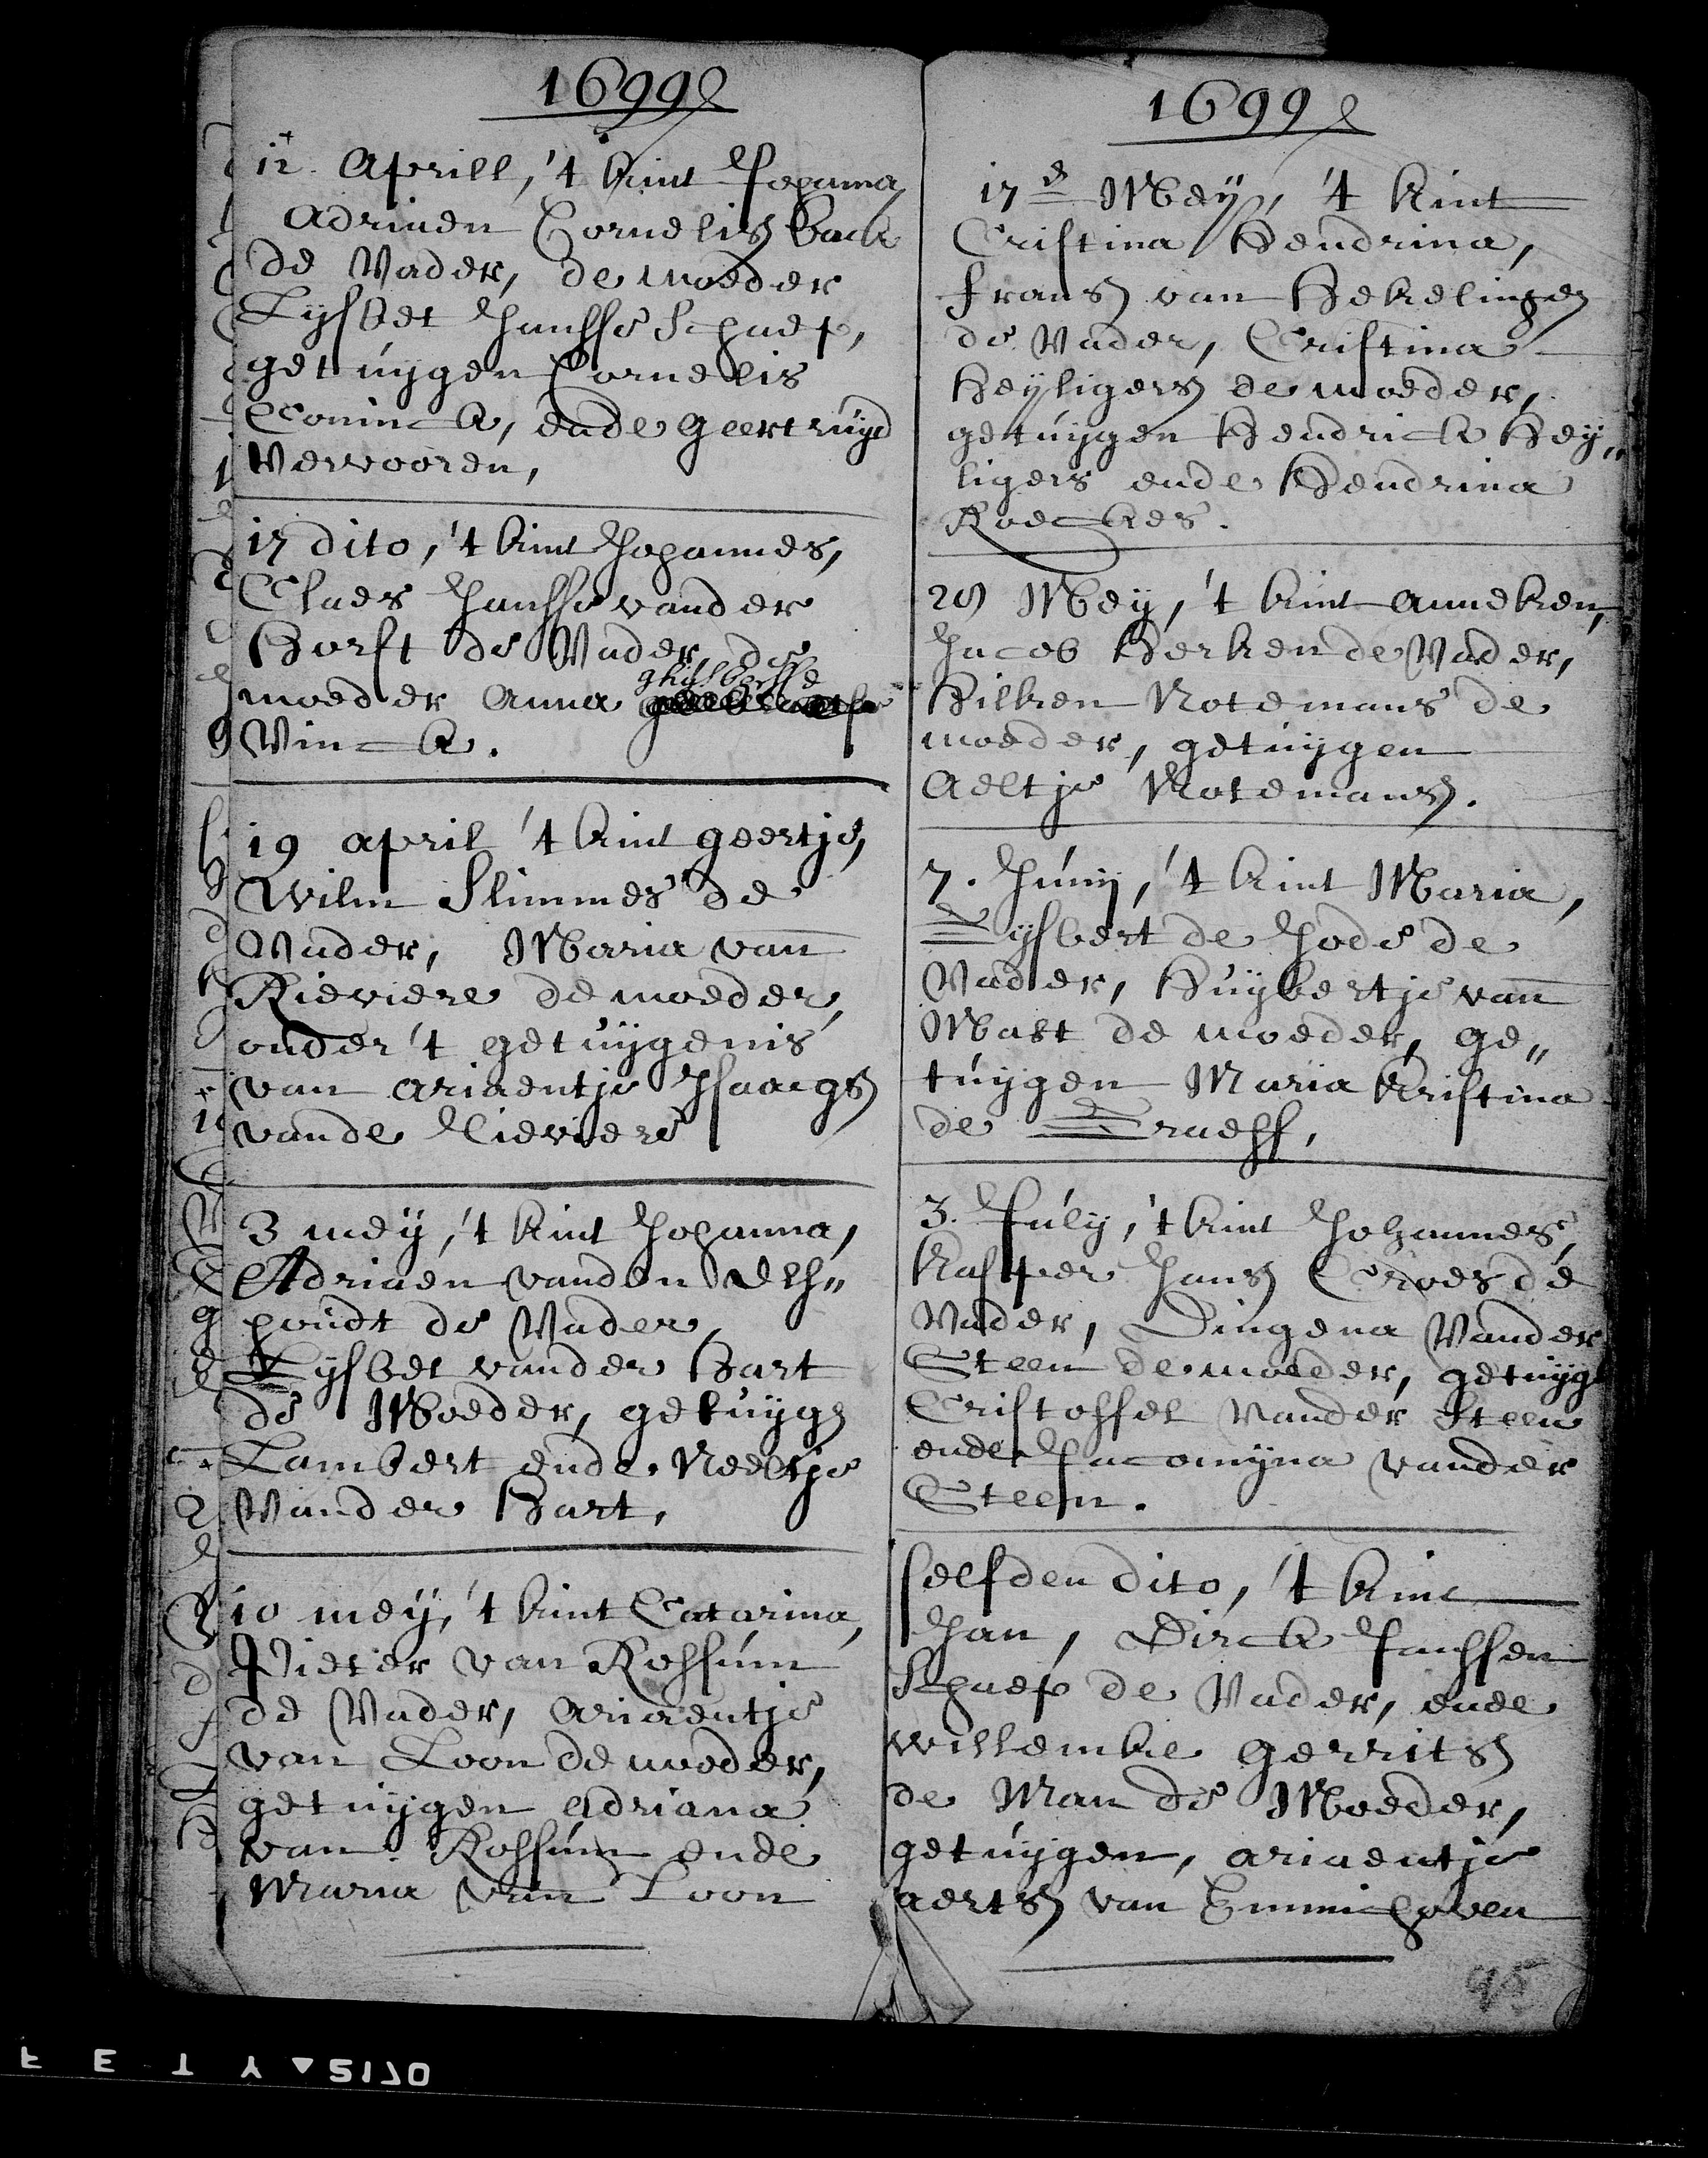 1699
12. Aprill, 't kint Johanna
Adriaen Cornelisz back
de Vader, de moeder
Lysbet Jansse Schaep,
getuijgen Cornelis
Coninck, ende geertruijd
Vervooren,
17 dito, 't kint Johannes,
Claes Jansse vander
Horst de Vader, de
moeder Anna ghijsbertsse
Vinck.
19 april 't kint geertje,
Wilm Slimmes de
Vader, Maria van
Rieviere de moeder,
onder 't getuijgenis
van ariaentje Isaacqsz
vande Rieviere
3 meij, 't kint Johanna,
Adriaen vanden
de Vader,
Lijsbet vander Hart
de Moeder, getuijgen
Lambert ende Neeltje
Vander Hart,
10 meij, 't kint Catarina,
Pieter van Rossum
de Vader, Ariaentje
van Loon de moeder,
getuijgen Adriana
van Rossum ende
Maria van Loon
1699
17 Meij, 't kint
Cristina Hendrina,
fransz van Hekelingen
de Vader, Cristina
Heyligersz de moeder,
getuijgen Hendrick Heij„
ligers ende Hendrina
Roeckes.
20 Meij, 't kint Anneken,
Jacob Herken de Vader,
Hilken Notemans de
moeder, getuijgen
Aeltje Notemansz.
7. Junij, 't kint Maria,
Gijsbert de Jode de
Vader, Huijbertje van
Mast de moeder, ge„
tuijgen Maria Kristina
de Graeff,
3. Julij, 't kint Johannes,
Kasper Jansz Croes de
Vader, Dingena Vander
Steen de moeder, getuijg
Cristoffel Vander Steen
ende Jacomijna vander
Steen.
selfden dito, 't kint
Jan, Dirck Janssen
Schaep de Vader, ende
willemke gerritsz
de Man de Moeder,
getuijgen, ariaentje
aertsz van Emmichoven
95
F E T Y 5170